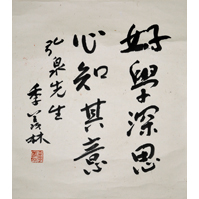 好學深思
心知其意
弘泉先生
季羡林